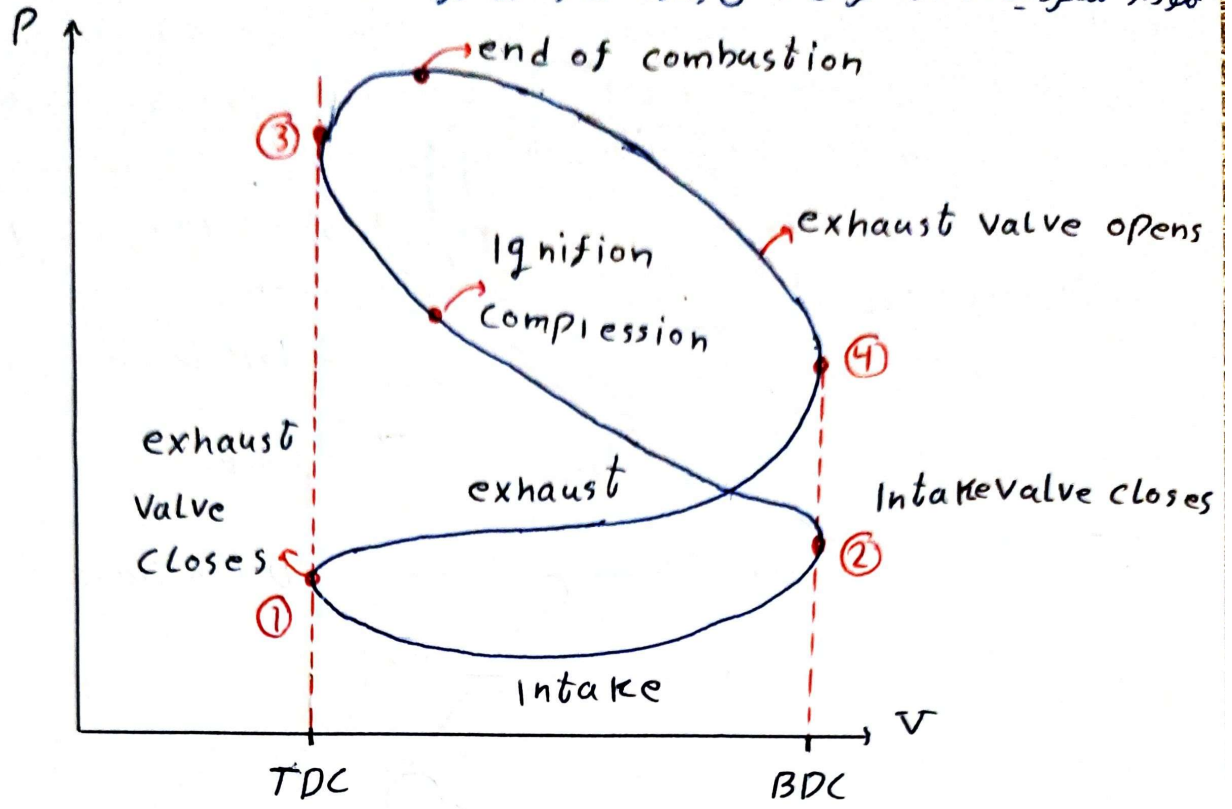 P
end of combustion
③
exhaust valve opens
Ignifion
compression
④
exhaust
valve
closes
exhaust
Intakevalve closes
②
①
Intake
V
TDC
BDC